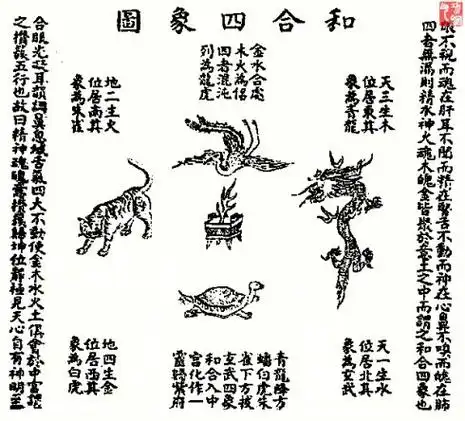 和合四象圖
眼不視而魂在肝耳不聞而精在腎舌不動而神在心鼻不嗅而魄在肺
四者無漏則精水神火魂木魄金皆聚於意土之中而謂之和合四象也
天三生木
位居東其
象為青龍
金水合處
木火為侶
四者混沌
列為龍虎
地二生火
位居南其
象為朱雀
天一生水
位居北其
象為玄武
青龍降方
虎朱
雀下方
玄武四象
和合入中
宮化作一
靈歸紫府
地四生金
位居西其
象為白虎
合眼光凝耳韻調鼻息緘舌氣四大不動使金木水火土俱會於中宮謂
之攢簇五行也故曰精神魂魄意攢簇歸坤位靜極見天心自有神明至